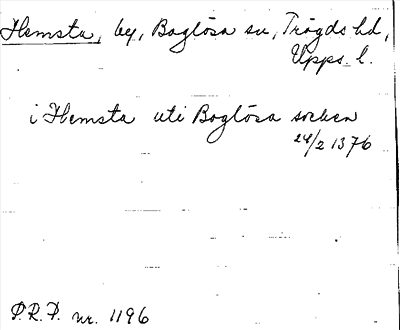 Hemsta, by, Boglösa sn, Trögds hd,
Upps. l.
i Hemsta uti Boglösa socken
24/2 1376
P.R.P. nr. 1196